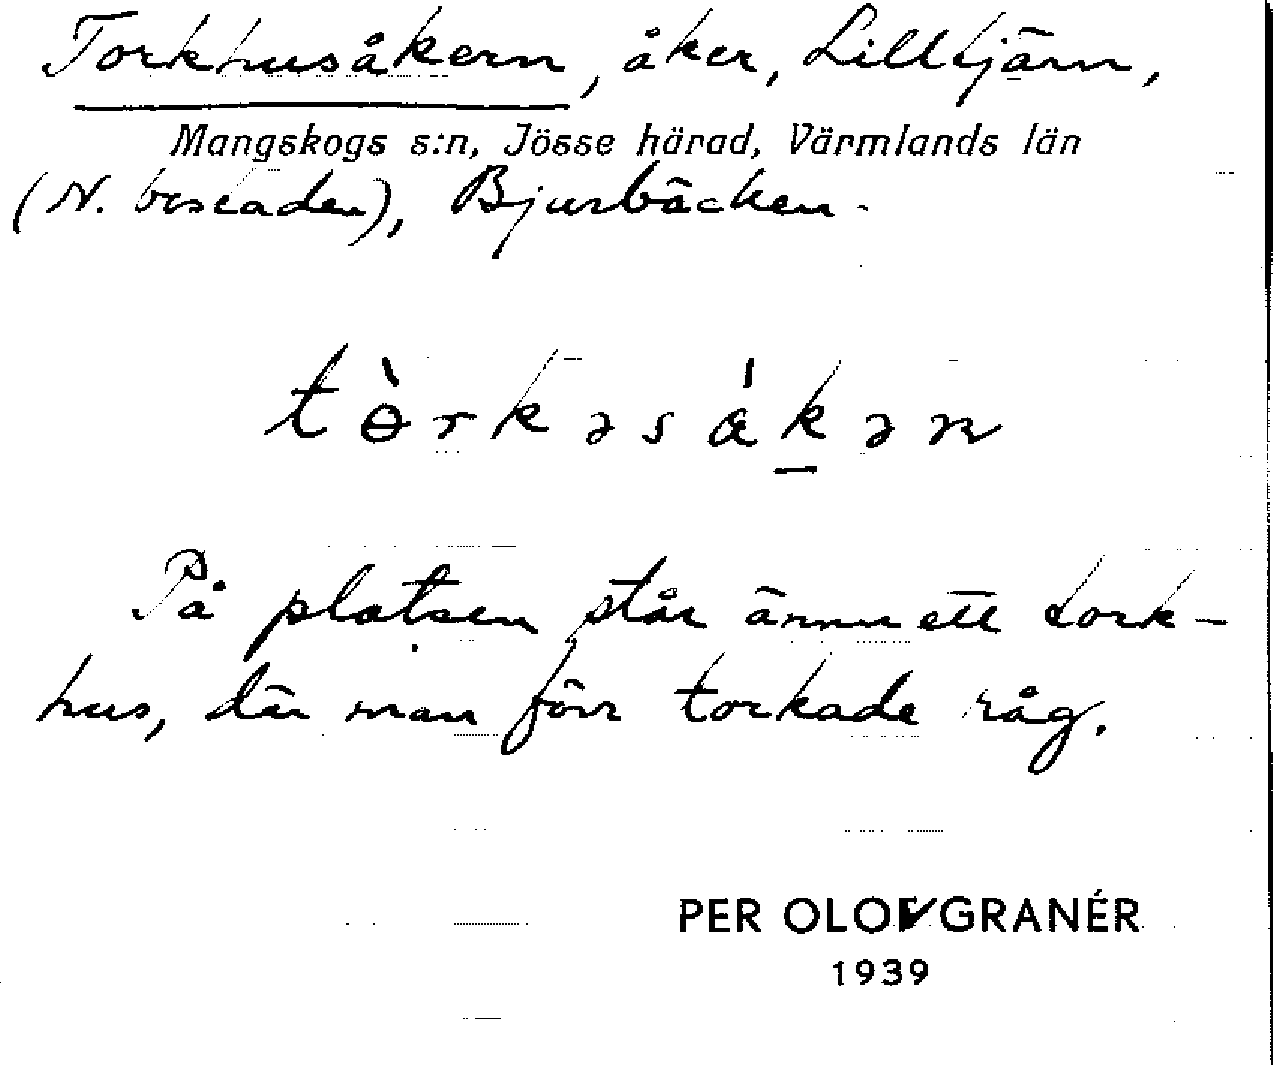 Torkhusåkern, åker, Lilltjärn,
Mangskogs s:n, Jösse härad, Värmlands län
(N. bostaden), Bjurbäcken.
tòrkəsákən
På platsen står ännu ett tork-
hus, där man förr torkade råg.
PER OLOV GRANÉR
1939